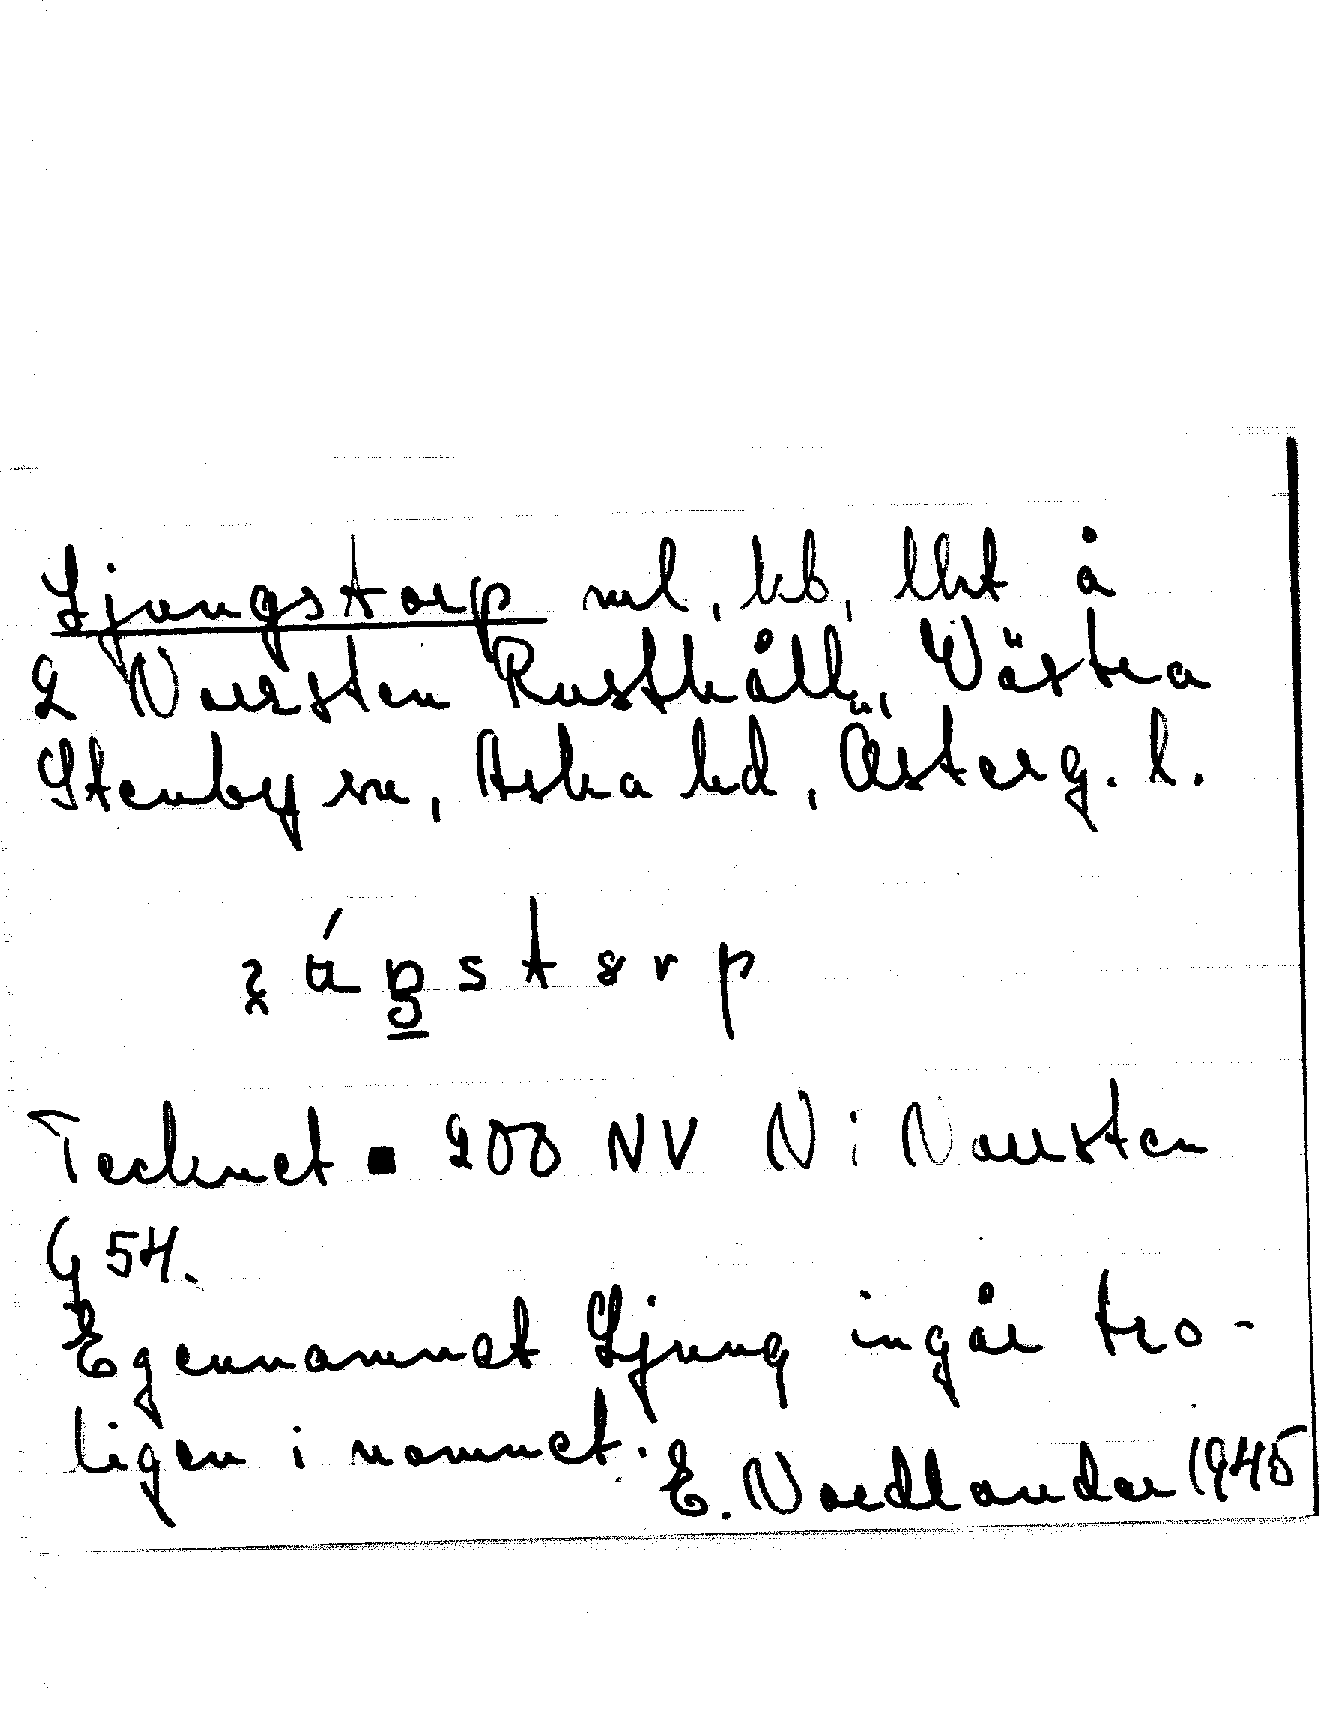 Ljungstorp ml, kb, lht å
2 Narsten Rusthåll, Västra
Stenby sn, Aska hd, Österg. l.
Tecknet ■ 200 NV N i Narsten
G 54.
Egennamnet Ljung ingår tro-
ligen i namnet.
E. Nordlander 1945